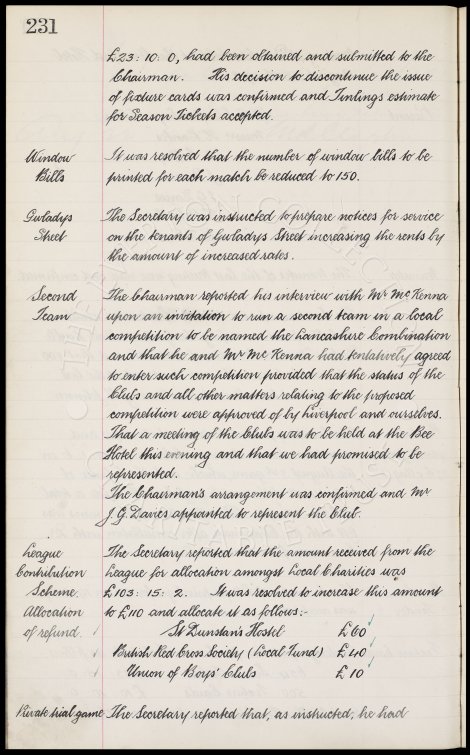 231
£23: 10: 0, had been obtained and submitted to the
Chairman. His decision to discontinue the issue
of fixture cards was confirmed and Tinlings estimate
for Season Tickets accepted.
Window It was resolved that the number of window bills to be
Bills printed for each match be reduced to 150.
Gwladys The Secretary was instructed to prepare notices for service
Street on the tenants of Gwladys Street increasing the rents by
the amount of increased rates.
Second The Chairman reported his interview with Mr McKenna
Team upon an invitation to run a second team in a local
competition to be named the Lancashire Combination
and that he and Mr McKenna had tentatively agreed
to enter such competition provided that the status of the
Clubs and all other matters relating to the proposed
competition were approved of by Liverpool and ourselves.
That a meeting of the Clubs was to be held at the Bee
Hotel this evening and that we had promised to be
represented.
The Chairman's arrangement was confirmed and Mr
J. G. Davies appointed to represent the Club.
League The Secretary reported that the amount received from the
Contribution League for allocation amongst Local Charities was
Scheme. £103: 15: 2. It was resolved to increase this amount
Allocation to £110 and allocate it as follows:-
of refund. St Dunstan's Hostel £60
British Red Cross Society (Local Fund) £40
Union of Boys' Clubs £10
Private trial game The Secretary reported that, as instructed, he had